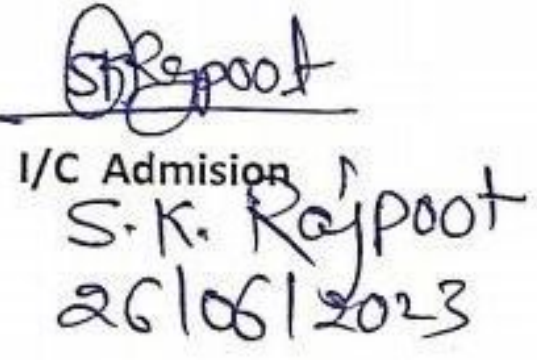 SKRajpoot
I/C Admision
S. K. Rajpoot
26/06/2023